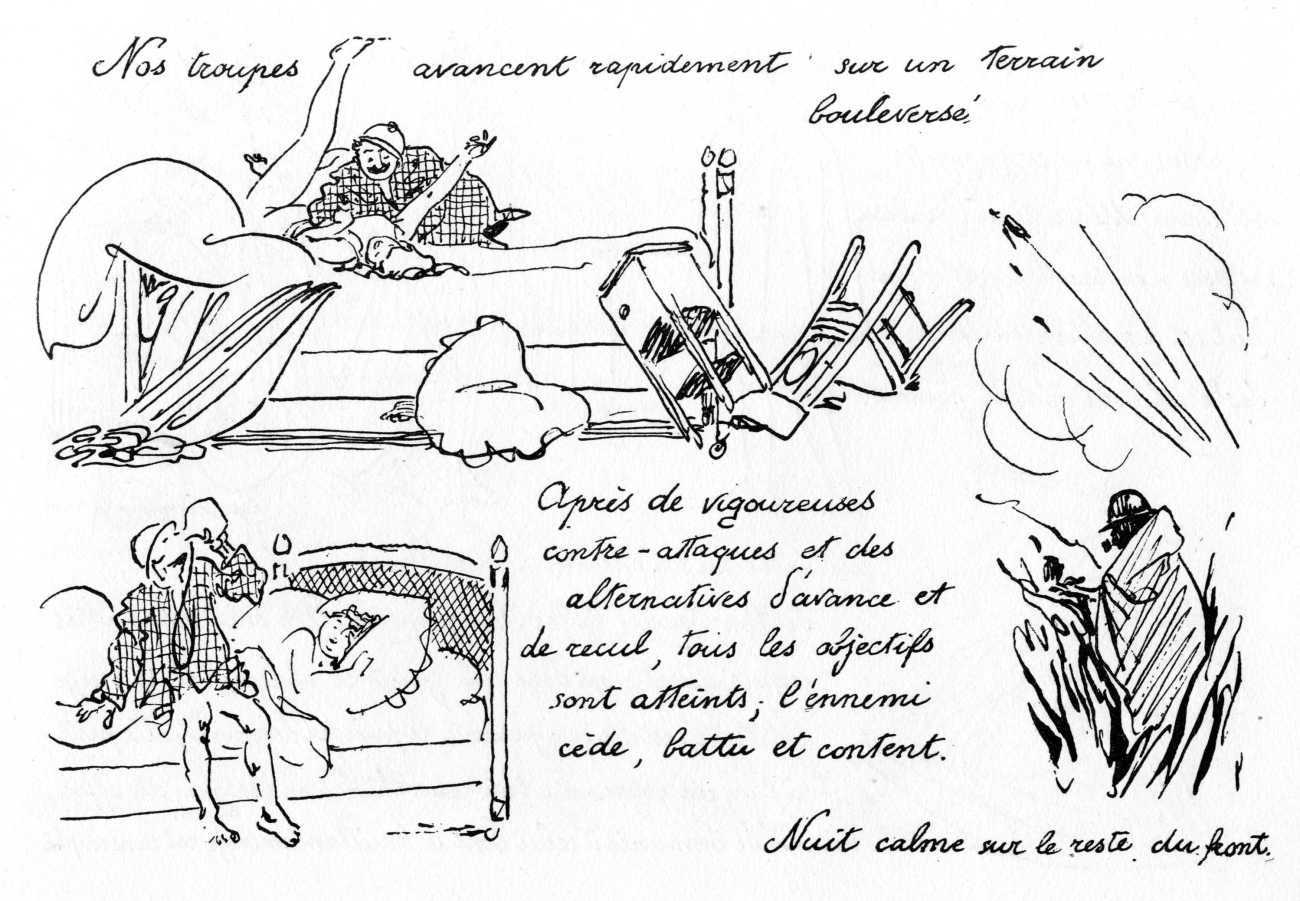 Nos troupes avancent rapidement sur un terrain
bouleversé
Après de vigoureuses
contre-attaques et des
alternatives d'avance et
de recul, tous les objectifs
sont atteints; l'énnemi
cède, battu et content.
Nuit calme sur le reste du front.